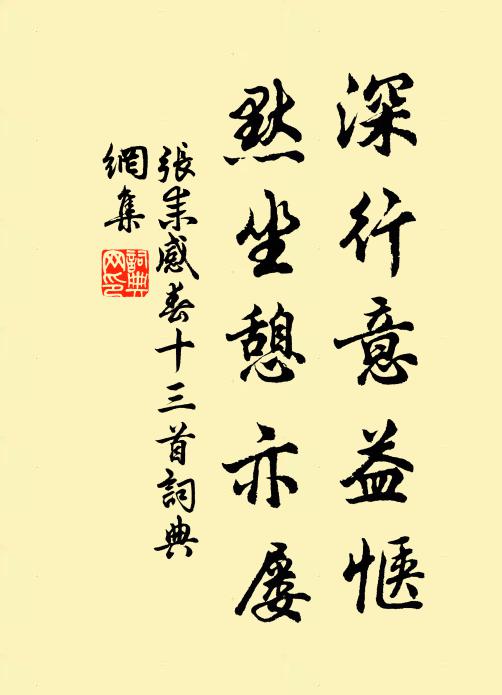 深行意益惬
默坐憩亦屡
張耒感春十三首詞典
網集
詞典网印